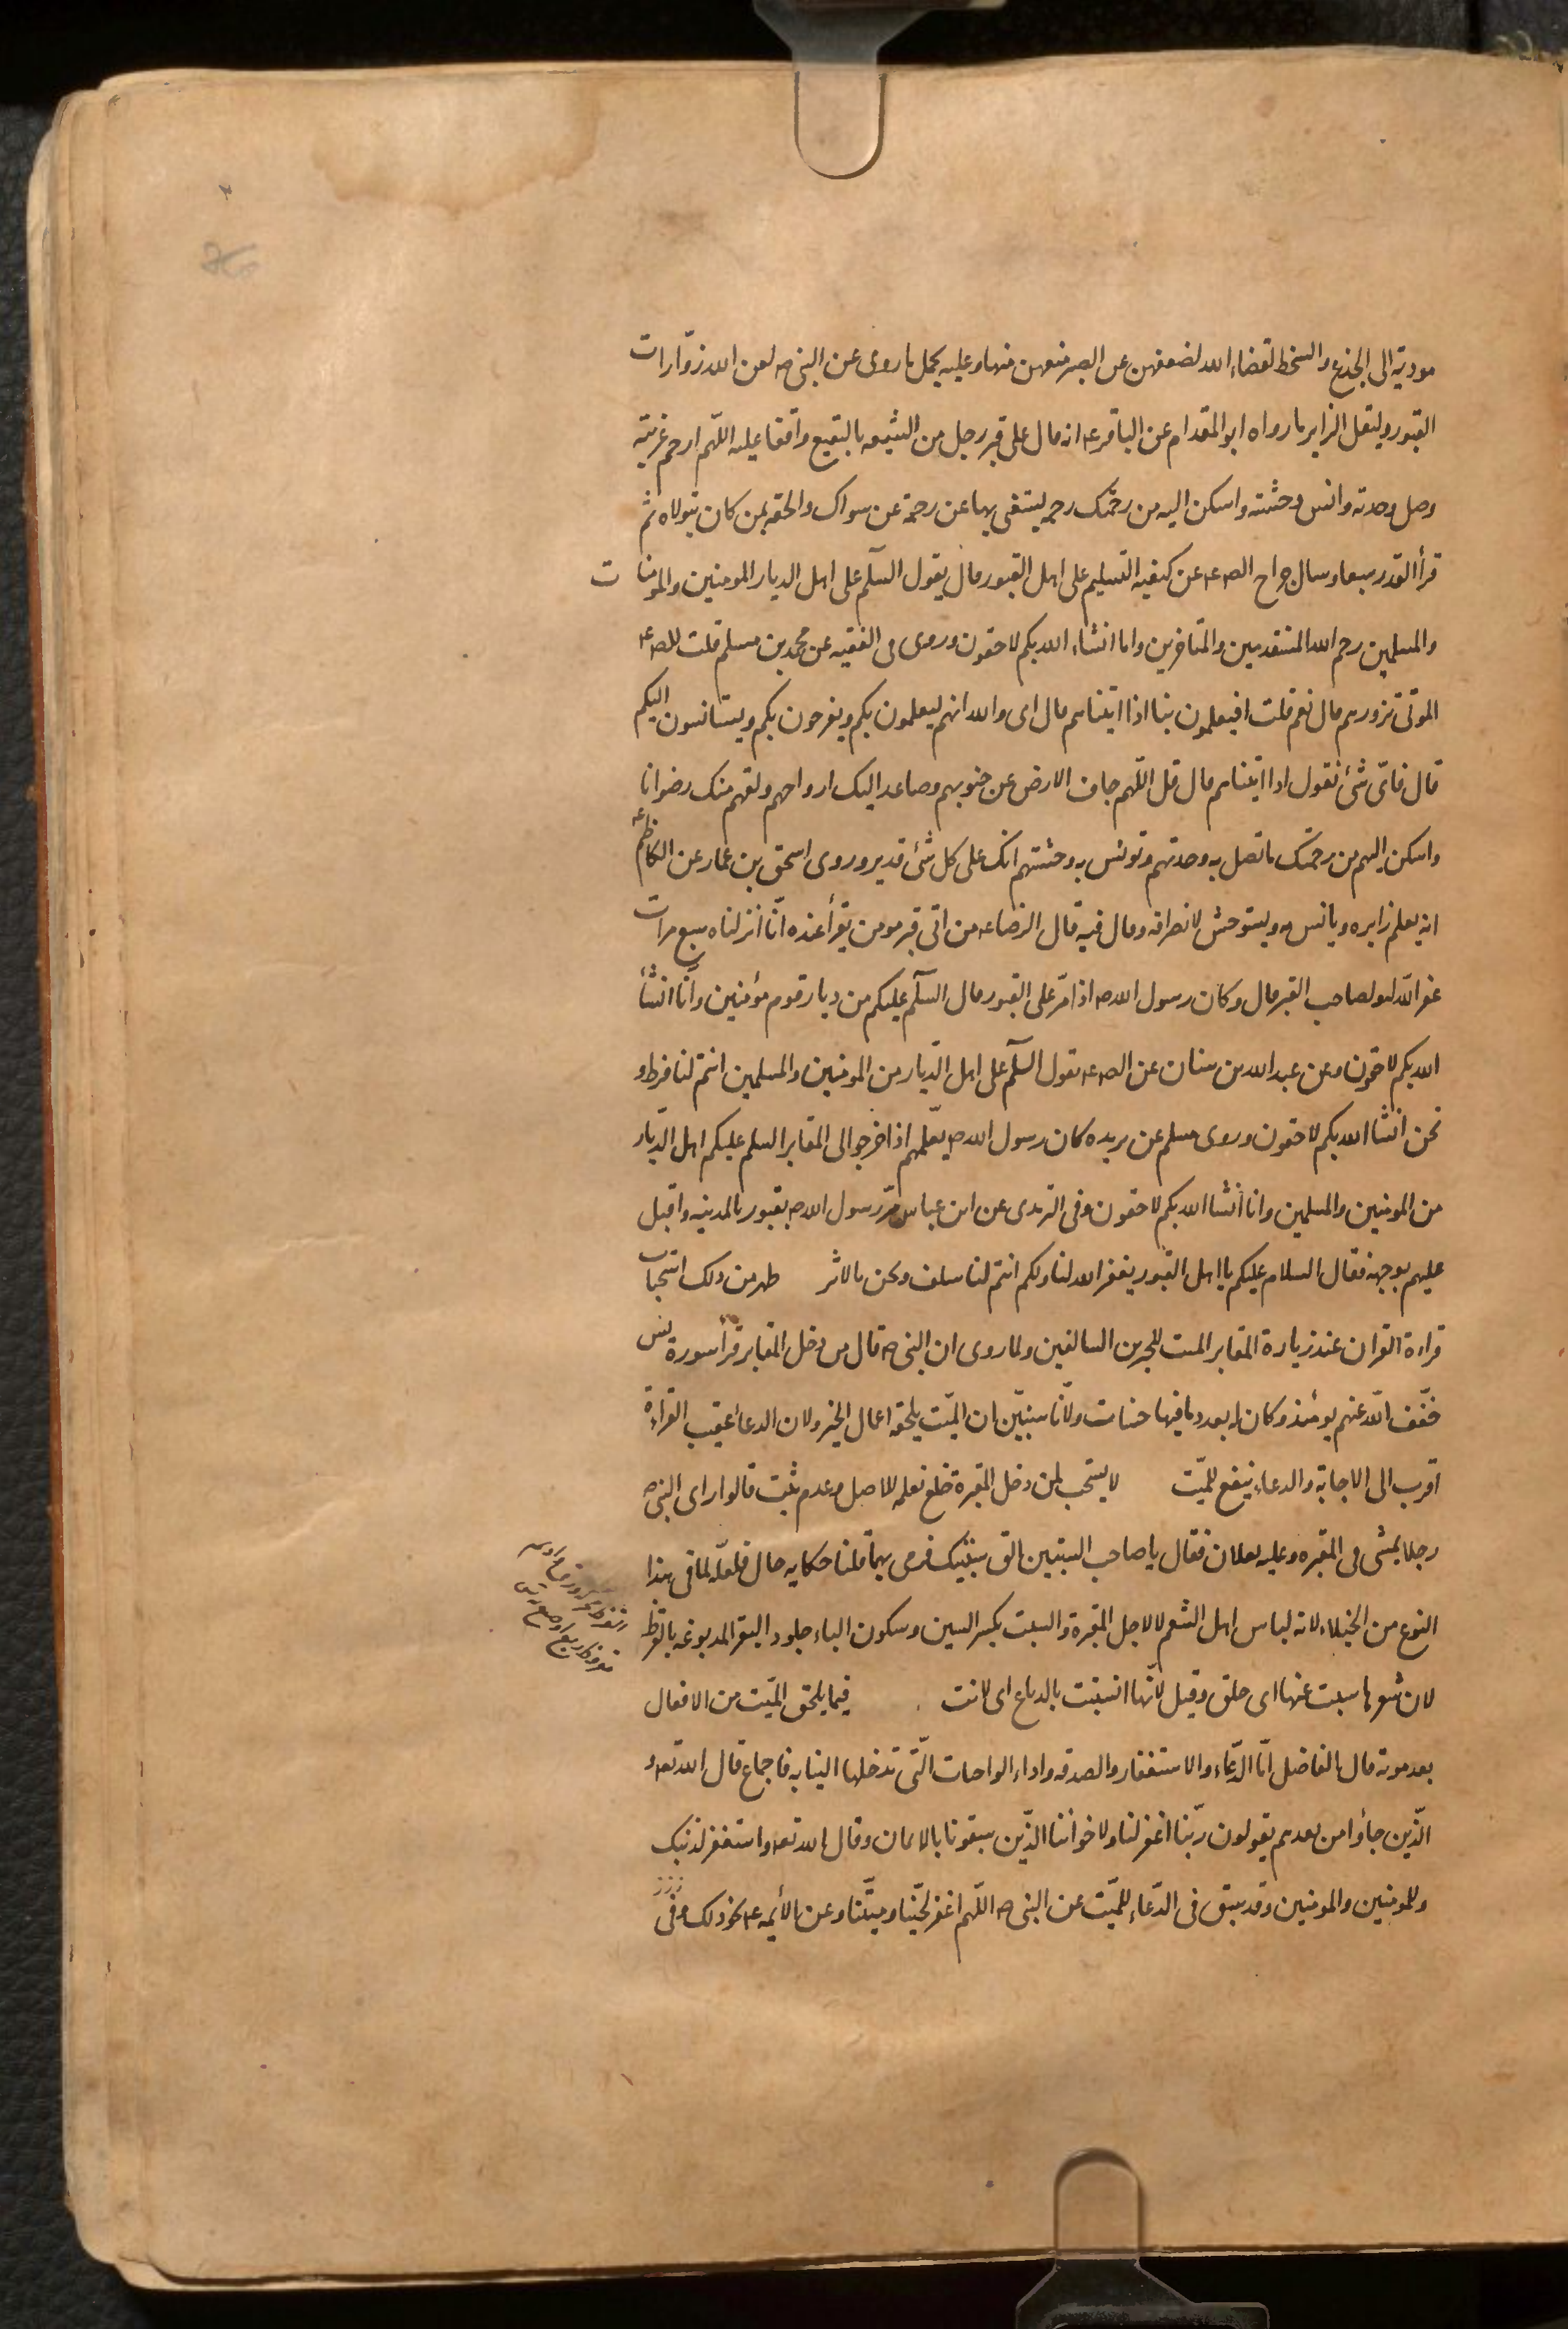 مودية الى الجزع والسخط لقضاء الله لضعفهن عن الصبر منعهن منها وعليه يحمل ما روى عن النبى ص لعن الله زوّارات
القبور وليقل الزاير ما رواه ابو المقدام عن الباقر ع انه قال على قبر رجل من الشيعه بالبقيع واقفا عليه اللّهم ارحم غربته
وصل وحدته وانس وحشته واسكن اليه من رحمتك رحمه يستغنى بها عن رحمة عن سواك والحقه بمن كان يتولاه ثم
قرأ القدر سبعا وسال جراح الص ع عن كيفيه التسليم على اهل القبور قال يقول السّلم على اهل الديار المومنين والمومنات
والمسلمين رحم الله المتقدمين والمتاخرين وانا انشاء الله بكم لاحقون وروى فى الفقيه عن محمد بن مسلم قلت للص ع
الموتى نزورهم قال نعم قلت افيعلمون بنا اذا اتيناهم قال اى والله انهم ليعلمون بكم ويفرحون بكم ويستانسون اليكم
قال فاىّ شئ نقول اذا اتيناهم قال قل اللّهم جاف الارض عن جنوبهم وصاعد اليك ارواحهم ولقهم منك رضوانا
واسكن اليهم من رحمتك ما تصل به وحدتهم وتونس به وحشتهم انك على كل شئ قدير وروى اسحق بن عمار عن الكاظم ع
انه يعلم زايره ويانس به ويستوحش لانصرافه وقال فيه قال الرضا ع من اتى قبر مومن يقرأ عنده انّا انزلناه سبع مرات
غفر الله له ولصاحب القبر قال وكان رسول الله ص اذا مرّ على القبور قال السّلم عليكم من ديار قوم مؤمنين وانّا انشأ
الله بكم لاحقون وعن عبد الله بن سنان عن الص ع يقول السّلم على اهل الدّيار من المومنين والمسلمين انتم لنا فرط و
نحن انشا الله بكم لاحقون وروى مسلم عن بريده كان رسول الله ص يعلّمهم اذا خرجوا الى المقابر السلم عليكم اهل الدّيار
من المومنين والمسلمين وانا انشا الله بكم لاحقون وفى الترمذى عن ابن عباس مرّ رسول الله ص بقبور بالمدينه واقبل
عليهم بوجهه فقال السلام عليكم يا اهل القبور يغفر الله لنا ولكم انتم لنا سلف ونحن بالاثر ظهر من ذلك استحباب
قراءة القرآن عند زيارة المقابر الميت للخبرين السالفين ولما روى ان النبى ص قال من دخل المقابر قرأ سورة يس
خفّف الله عنهم يومئذ وكان له بعدد ما فيها حسنات ولانّا سنبيّن ان الميّت يلحقه اعمال الخير ولان الدعا عقيب القراءة
اقرب الى الاجابة والدعاء ينفع للميّت لا يستحب لمن دخل المقبرة خلع نعله للاصل وعدم ثبت قالوا راى النبى ص
رجلا يمشى فى المقبره وعليه نعلان فقال يا صاحب السبتين الق سبتيك فرمى بهما قلنا حكايه حال فلعلّه لما فى هذا
النوع من الخيلاء لانه لباس اهل التنعم لا لاجل المقبرة والسبت بكسر السين وسكون الباء جلود البقر المدبوغه بالقرظ
لان شعرها سبت عنها اى حلق وقيل لانّها انسبتت بالدباغ اى لانت فيما يلحق الميّت من الافعال
بعد موته قال الفاضل امّا الدّعاء والاستغفار والصدقه واداء الواجبات الّتى تدخلها النيابه فاجماع قال الله تعه و
الّذين جاؤا من بعدهم يقولون ربّنا اغفر لنا ولاخواننا الذّين سبقونا بالايمان وقال الله تعه واستغفر لذنبك
وللمومنين والمومنين وقد سبق فى الدّعاء للميّت عن النبى ص اللّهم اغفر لحيّنا وميّتنا وعن الأئمه ع نحو ذلك وفى